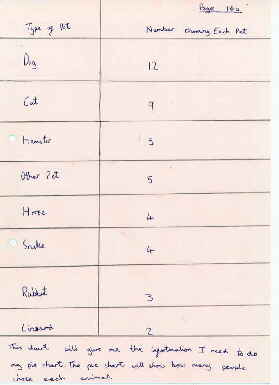 Page 16a
Type of Pet Number Owning Each Pet
Dog 12
Cat 9
Hamster 5
Other Pet 5
Horse 4
Snake 4
Rabbit 3
Lizard 2
This chart will give me the information I need to do
my pie chart. The pie chart will show how many people
chose each animal.